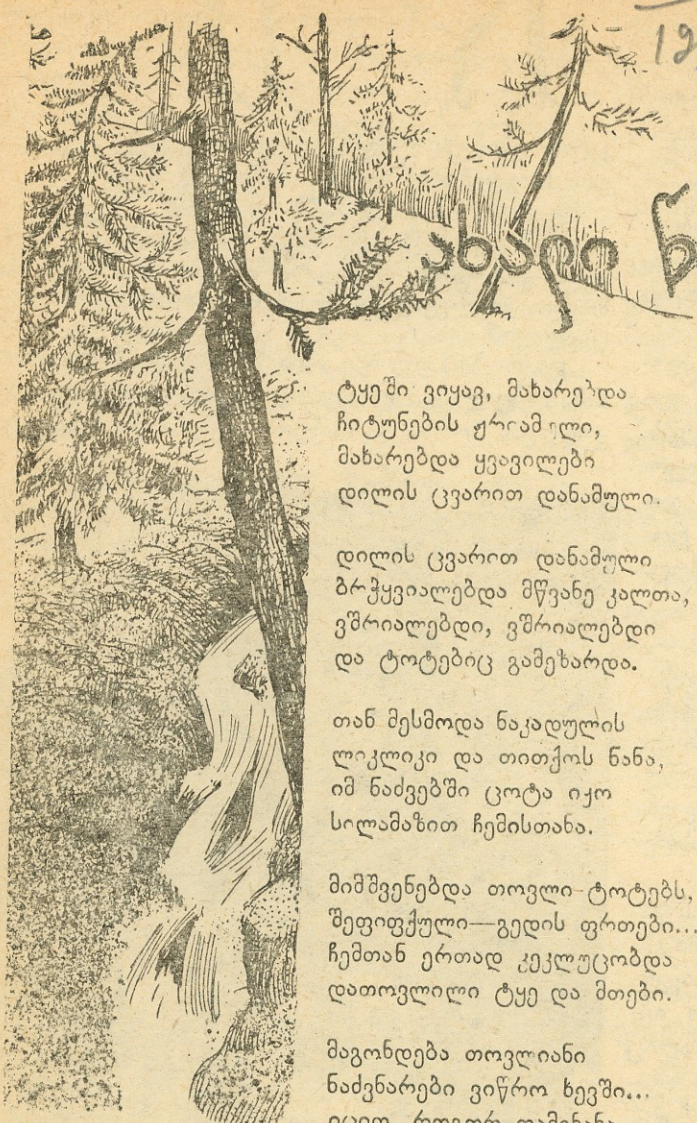 19
ახალი წ
ტყეში ვიყავ, მახარებდა
ჩიტუნების ჟრიამული,
მახარებდა ყვავილები
დილის ცვარით დანამული.
დილის ცვარით დანამული
ბრჭყვიალებდა მწვანე კალთა,
ვშრიალებდი, ვშრიალებდი
და ტოტებიც გამეზარდა.
თან მესმოდა ნაკადულის
ლიკლიკი და თითქოს ნანა,
იმ ნაძვებში ცოტა იყო
სილამაზით ჩემისთანა.
მიმშვენებდა თოვლი-ტოტებს,
შეფიფქული—გედის ფრთები...
ჩემთან ერთად კეკლუცობდა
დათოვლილი ტყე და მთები.
მაგონდება თოვლიანი
ნაძვნარები ვიწრო ხევში...